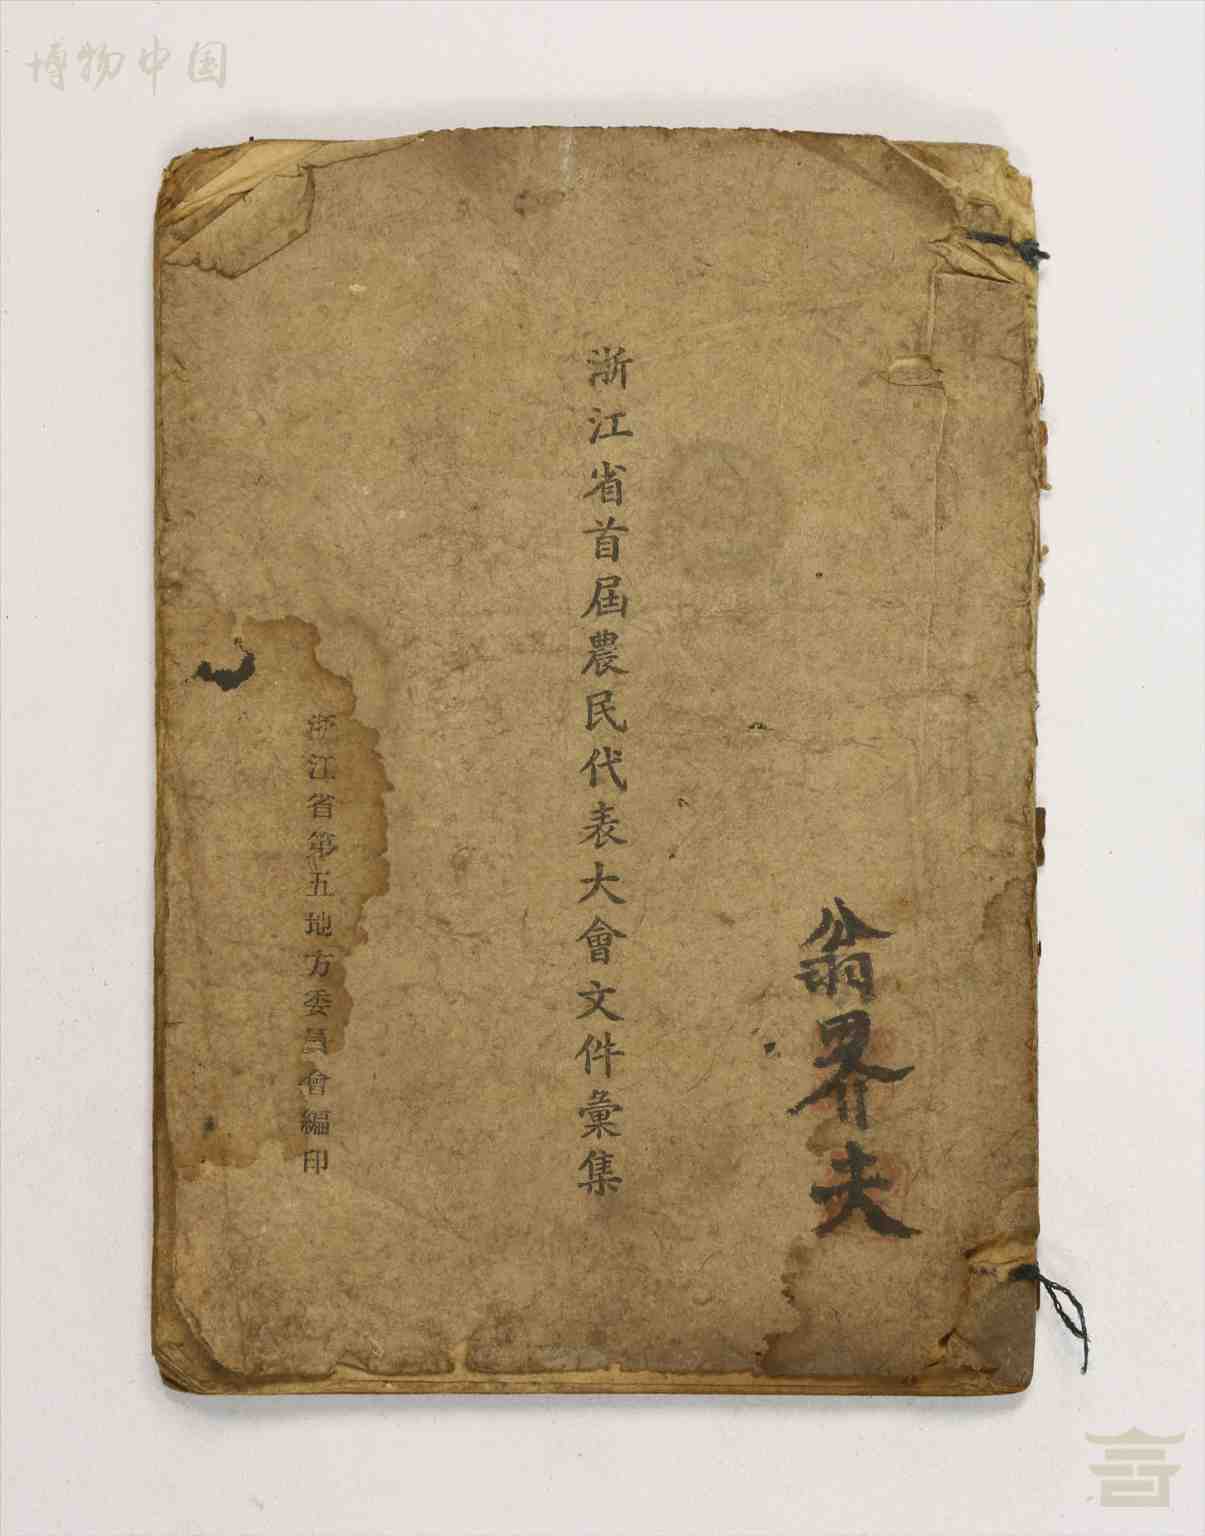 博物中国
翁界夫
浙江省首屆農民代表大會文件彙集
浙江省第五地方委員會編印